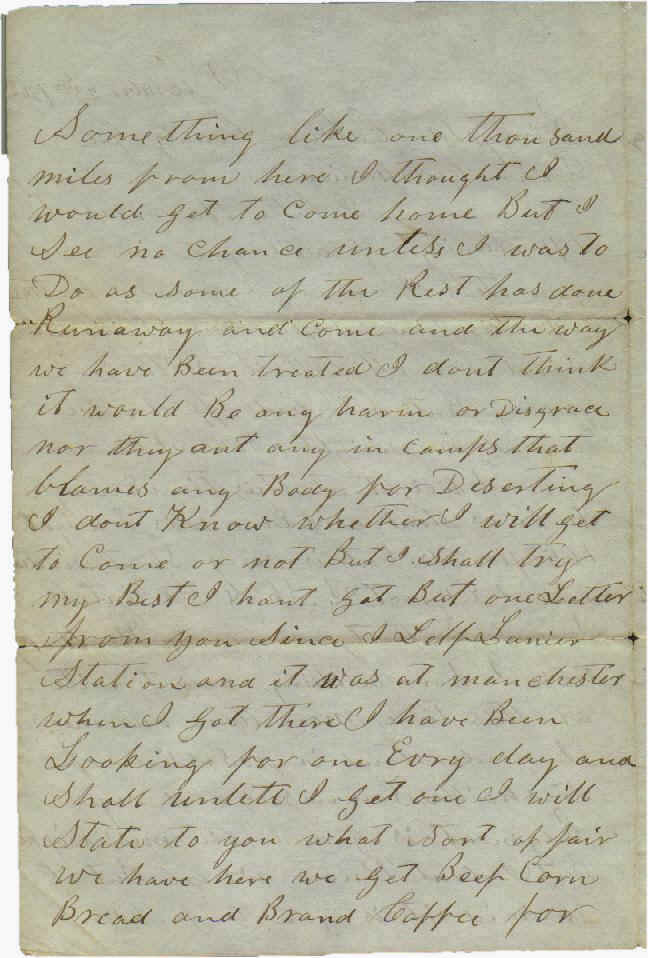 Something like one thousand
miles from here I thought I
would get to Come home But I
See no Chance unless I was to
Do as some of the Rest has done
Runaway and Come and the way
we have Been treated I dont think
it would Be any harm or Disgrace
nor they ant any in Camps that
blames any Body for Deserting
I dont Know whether I will get
to Come or not But I Shall try
my Best I hant got But one Letter
from you Since I Left Lanier
Station and it was at manchester
when I got there I have Been
Looking for one Evry day and
Shall untell I get one I will
State to you what Sort of fair
we have here we get Beef Corn
Bread and Brand Coffee for